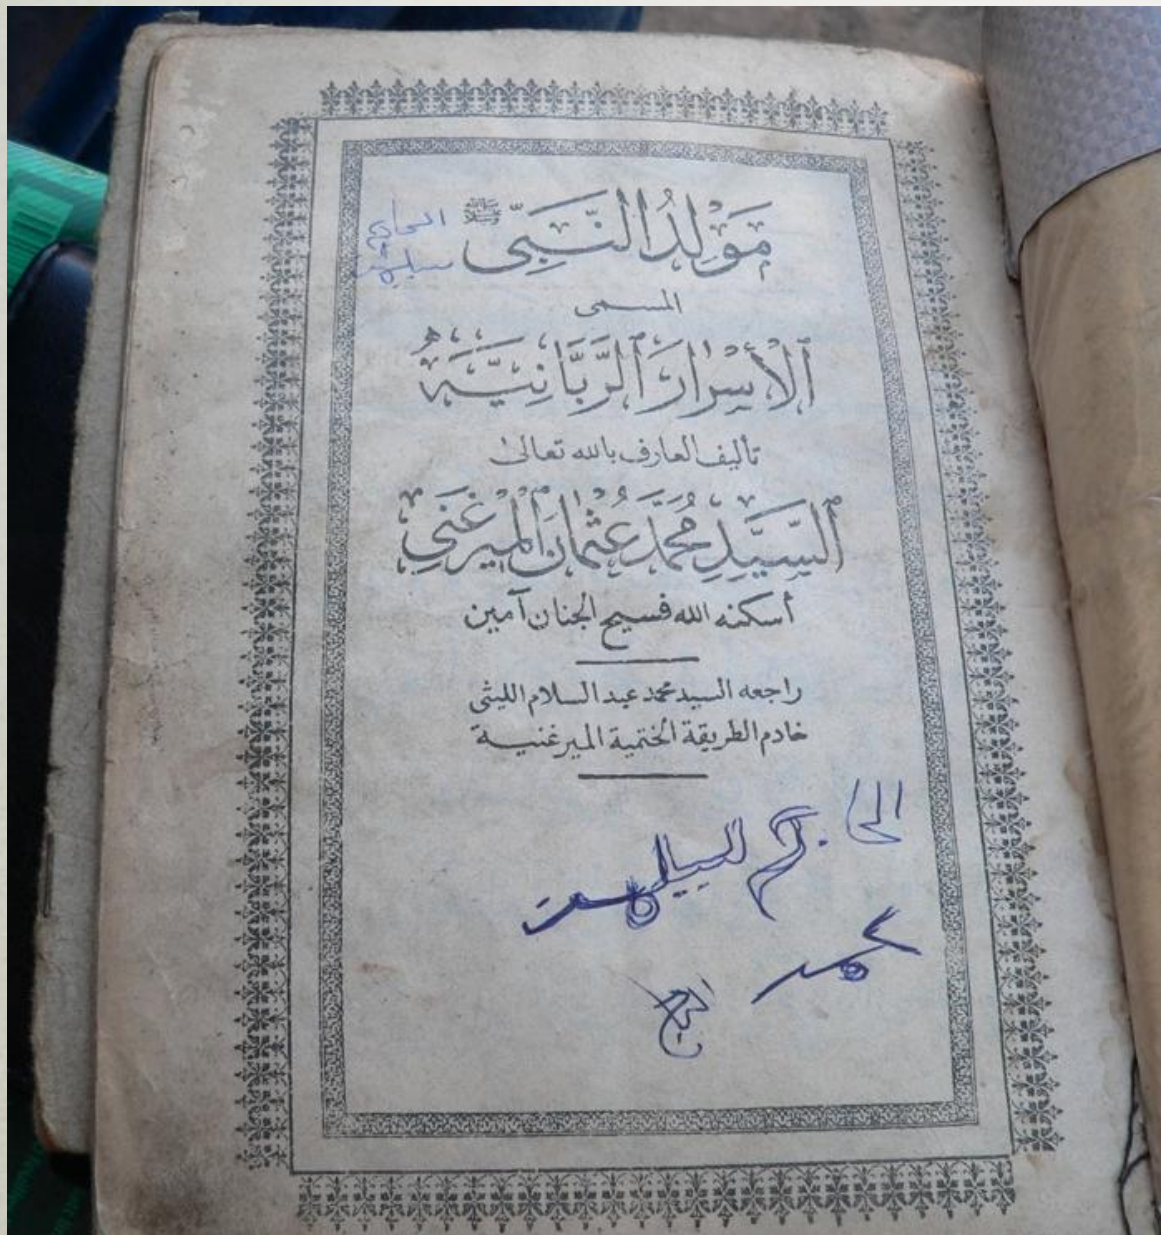 مَوْلِدُ النَّبِيّ ﷺ
المسمى
اَلْأَسْرَارَ اَلرَّبَّانِيَّةَ
تأليف العارف بالله تعالى
اَلسَّيِّدِ مُحَمَّدْ عُثْمَانَ اَلْمِيرْغَنِي
أسكنه الله فسيح الجنان آمين
راجعه السيد محمد عبد السلام الليثى
خادم الطريقة الختمية الميرغنية